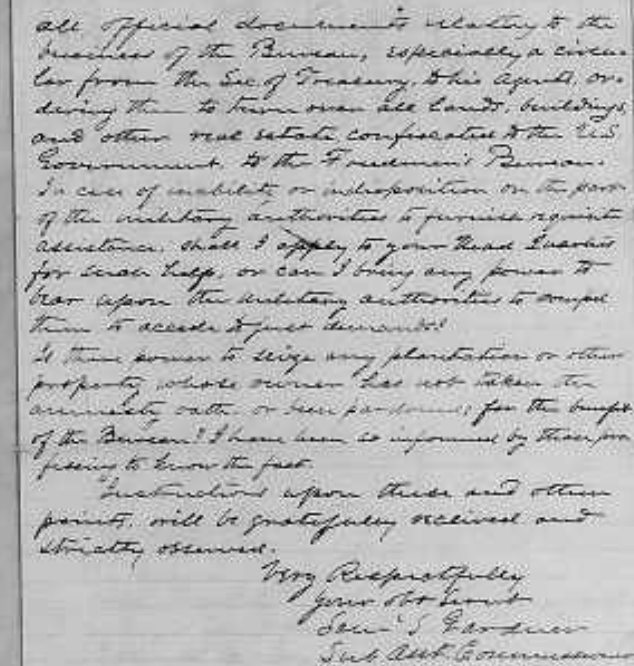 all official documents relating to the
business of the Bureau, especially a circu-
lar from the Sec of Treasury, to his agents, or-
dering them to turn over all lands, buildings,
and other real estate confiscated to the U.S.
Government to the Freedmen's Bureau.
In case of inability or indisposition on the part
of the military authorities to furnish requisite
assistance, shall I apply to your Head Quarters
for such help, or can I bring any power to
bear upon the military authorities to compel
them to accede to just demands?
Is there power to seize any plantation or other
property whose owner has not taken the
amnesty oath, or been pardoned, for the benefit
of the Bureau? I have been so informed by those pro
fessing to know the fact.
Instructions upon these and other
points, will be gratefully received and
strictly observed.
Very Respectfully
your obt Servt
Saml S Gardner
Sub Asst Commissioner